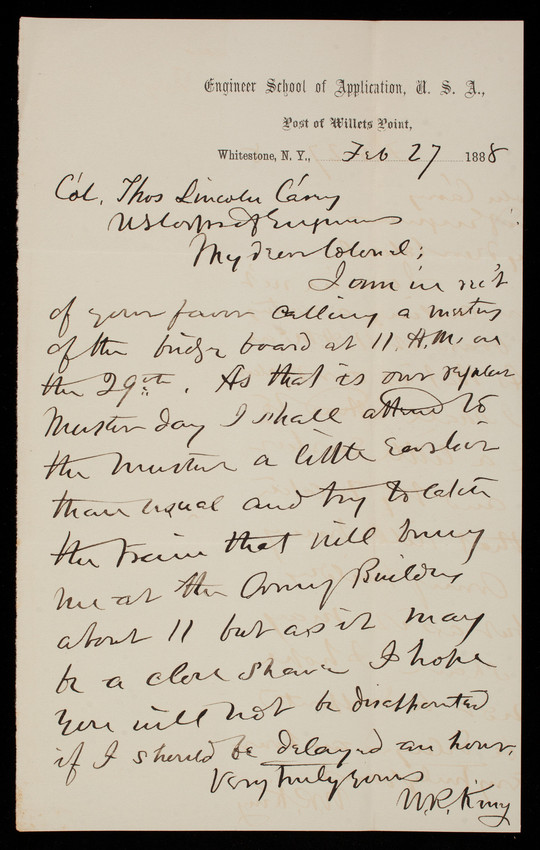 Engineer School of Application, U. S. A.,
Post of Willets Point,
Whitestone, N. Y., Feb 27 1888
Col. Thos Lincoln Casey
US Corps of Engineers
My dear Colonel;
I am in rec't
of your favor calling a meeting
of the bridge board at 11 A.M. on
the 29th. As that is our regular
Muster day I shall attend to
the muster a little earlier
than usual and try to catch
the train that will bring
me at the Army Building
about 11 but as it may
be a close shave I hope
you will not be disappointed
if I should be delayed an hour.
Very truly yours
W.R. King